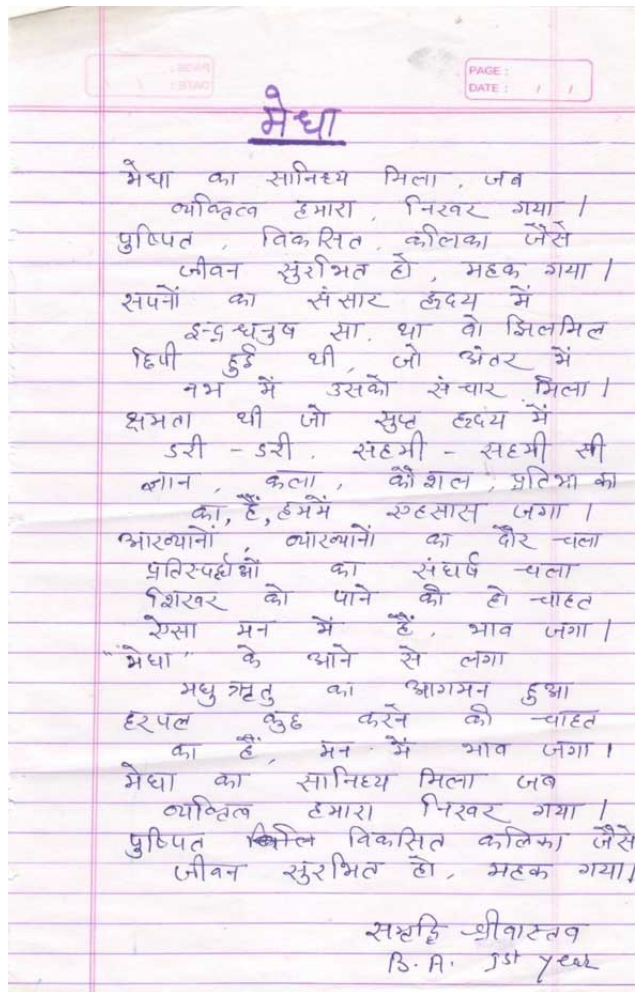 PAGE :
DATE : / /
मेधा
मेधा का सानिध्य मिला, जब
व्यक्तित्व हमारा, निखर गया ।
पुष्पित, विकसित, कलिका जैसे
जीवन सुरभित हो, महक गया ।
सपनों का संसार हृदय में
इन्द्रधनुष सा, था वो झिलमिल
छिपी हुई थी, जो अंतर में
नभ में उसको संचार मिला ।
क्षमता थी जो सुप्त हृदय में
डरी - डरी, सहमी - सहमी सी
ज्ञान, कला, कौशल, प्रतिभा का
का, हैं, हममें एहसास जगा ।
आख्यानों, व्याख्यानों का दौर चला
प्रतिस्पर्धाओं का संघर्ष चला
शिखर को पाने की हो चाहत
ऐसा मन में हैं, भाव जगा ।
"मेधा" के आने से लगा
मधु ऋतु का आगमन हुआ
हरपल कुछ करने की चाहत
का हैं, मन में भाव जगा ।
मेधा का सानिध्य मिला जब
व्यक्तित्व हमारा निखर गया ।
पुष्पित विकसित कलिका जैसे
जीवन सुरभित हो, महक गया ।
समृद्धि श्रीवास्तव
B.A. Ist year